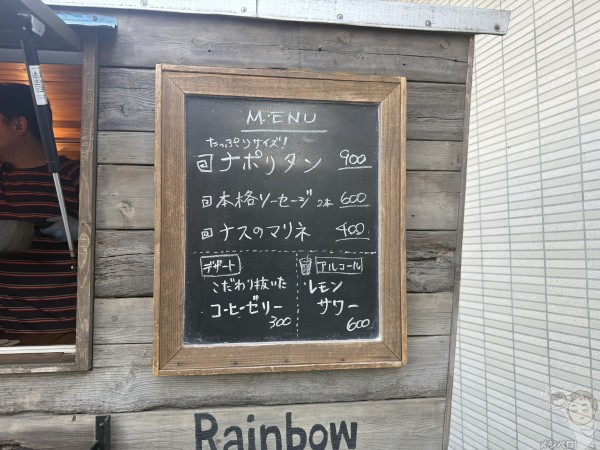 MENU
たっぷりサイズ!
回ナポリタン 900
回本格ソーセージ 2本 600
回ナスのマリネ 400
デザート
こだわり抜いた
コーヒーゼリー
300
アルコール
レモン
サワー
600
Rainbow
メシペロ